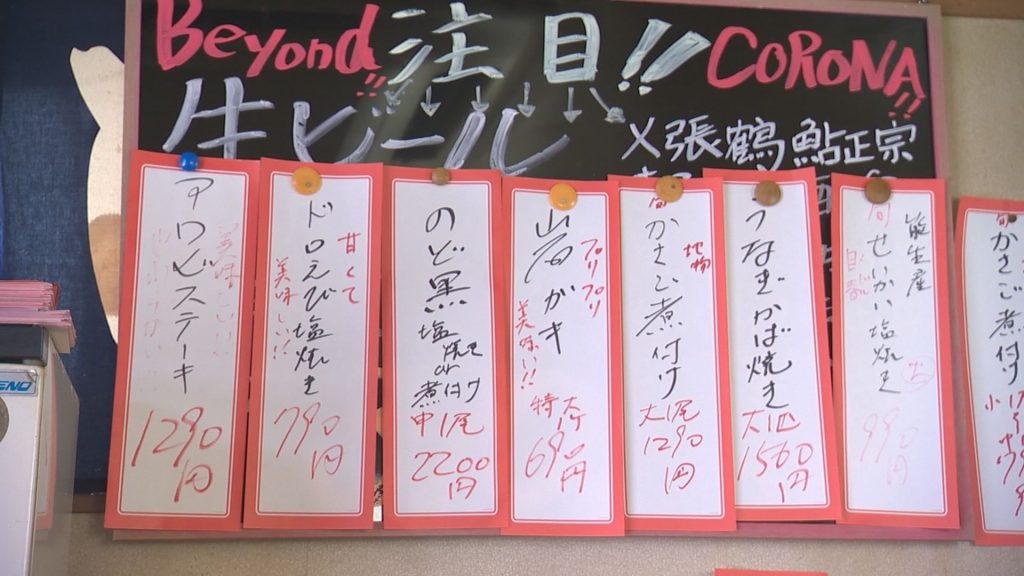 Beyond!! 注目!! CORONA!!
生ビール
〆張鶴 鮎正宗
アワビステーキ
1290円
甘くて
美味しい!!
ドロえび塩焼き
790円
のど黒 塩焼き or 煮付け
中1尾
2200円
プリプリ
美味い!!
岩ガキ
特大
690円
地物
旬 かさご煮付け
大1尾
1290円
うなぎかば焼き
大1匹
1560円
能生産
旬 せいかい塩焼き
990円
旬 かさご煮付け
小